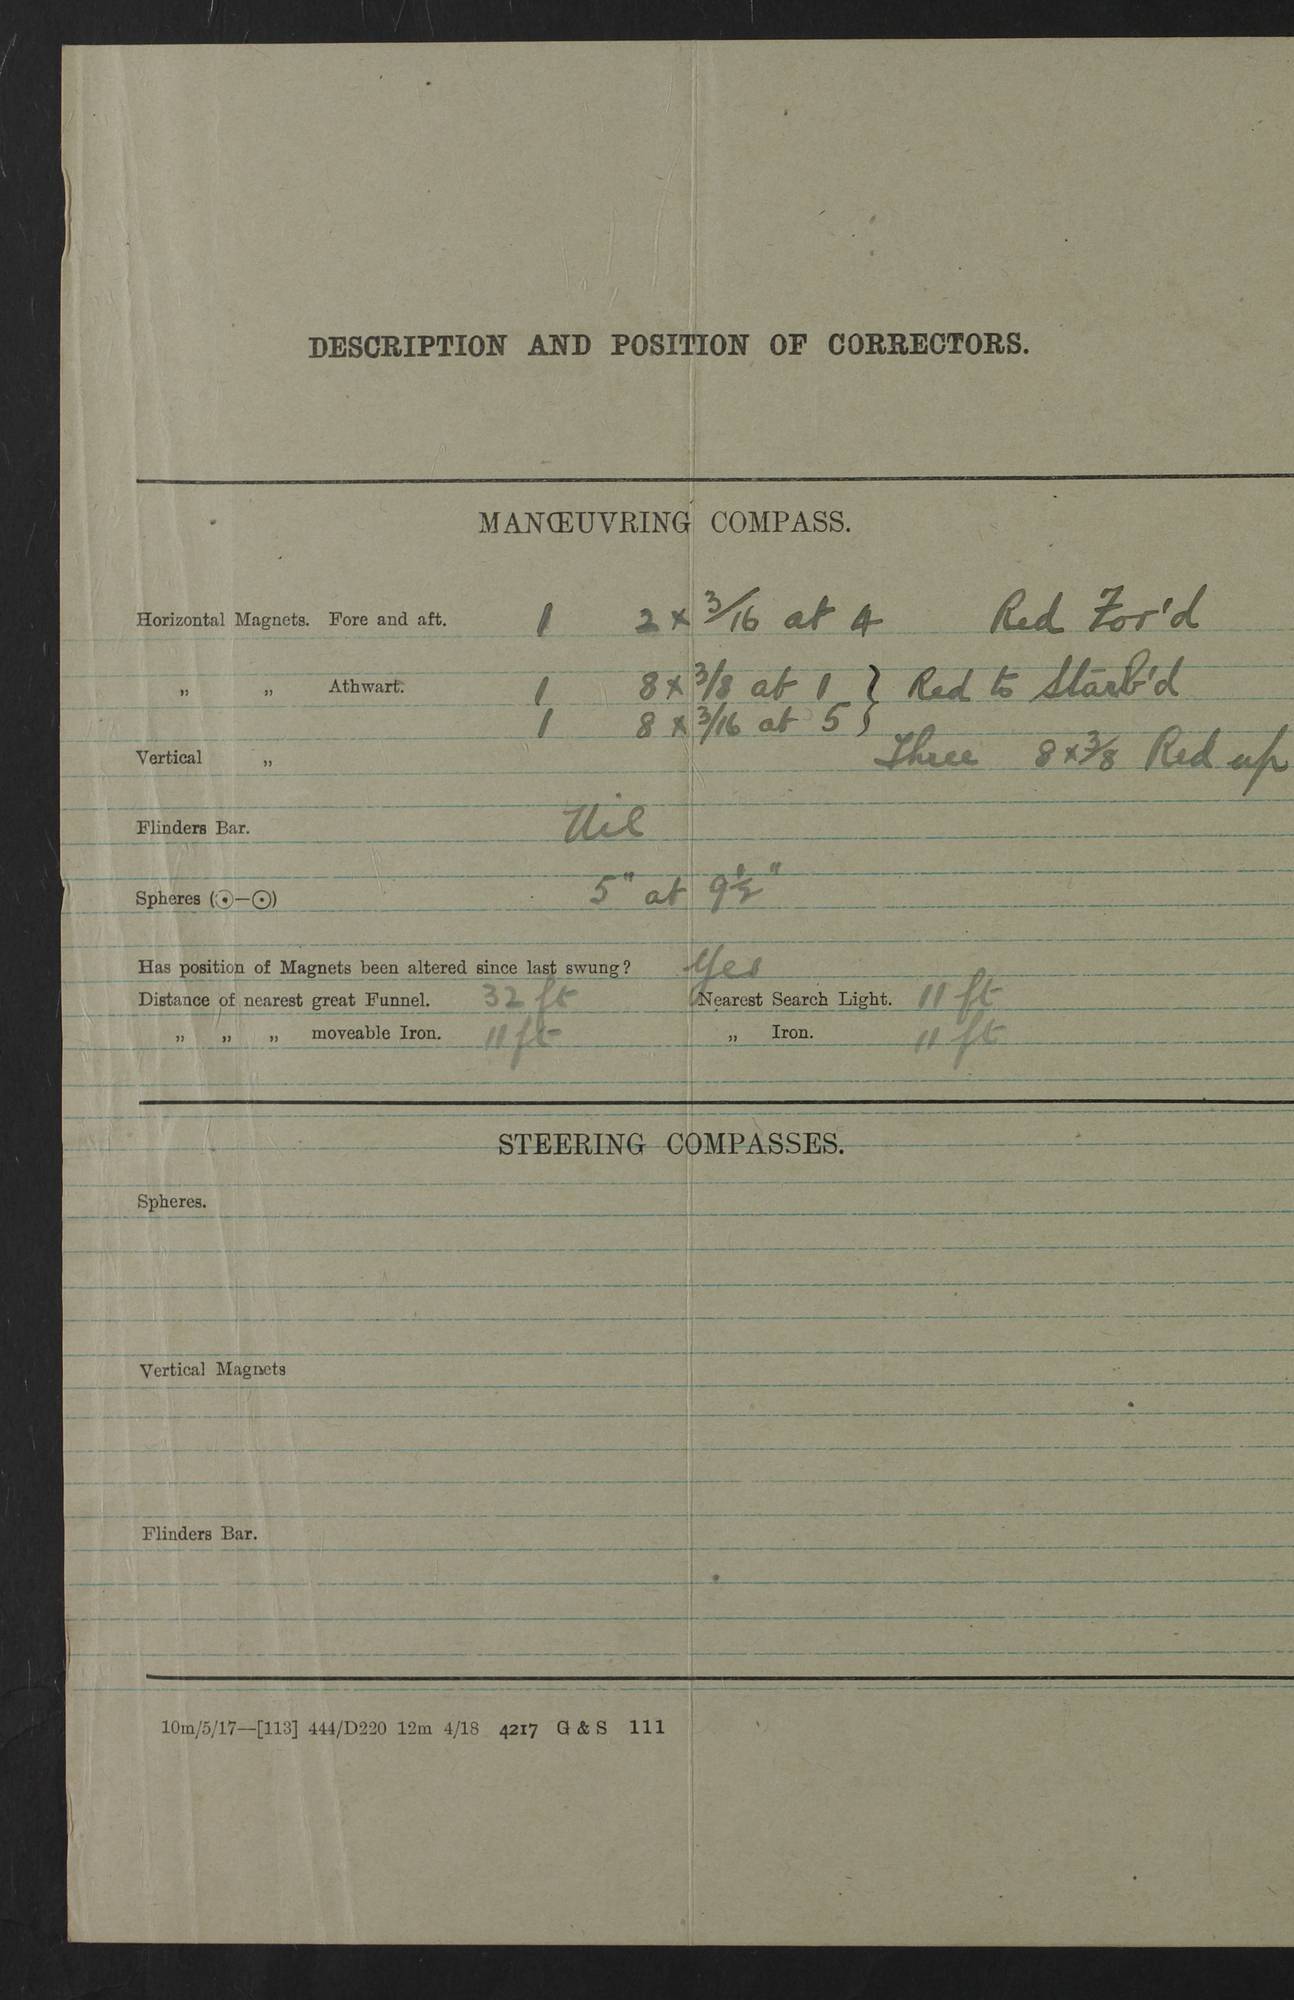 DESCRIPTION AND POSITION OF CORRECTORS.
MANŒUVRING COMPASS.
Horizontal Magnets. Fore and aft. 1 2 x 3/16 at 4 Red For'd
„ „ Athwart. 1 8 x 3/8 at 1 } Red to Starb'd
1 8 x 3/16 at 5
Vertical „ Three 8 x 3/8 Red up
Flinders Bar. Nil
Spheres (⊙—⊙) 5" at 9½"
Has position of Magnets been altered since last swung? Yes
Distance of nearest great Funnel. 32 ft Nearest Search Light. 11 ft
„ „ „ moveable Iron. 11 ft „ Iron. 11 ft
STEERING COMPASSES.
Spheres.
Vertical Magnets
Flinders Bar.
10m/5/17—[113] 444/D220 12m 4/18 4217 G & S 111